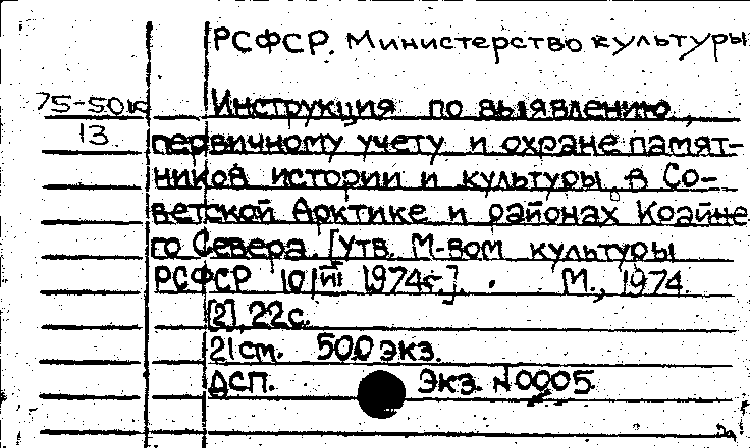 РСФСР. Министерство культуры
75-50к
13
Инструкция по выявлению,
первичному учету и охране памят-
ников истории и культуры в Со-
ветской Арктике и районах Крайне
го Севера. [Утв. М-вом культуры
РСФСР 10/III 1974г.]. М., 1974.
[2], 22с.
21см. 500 экз.
ДСП. Экз. №0005.